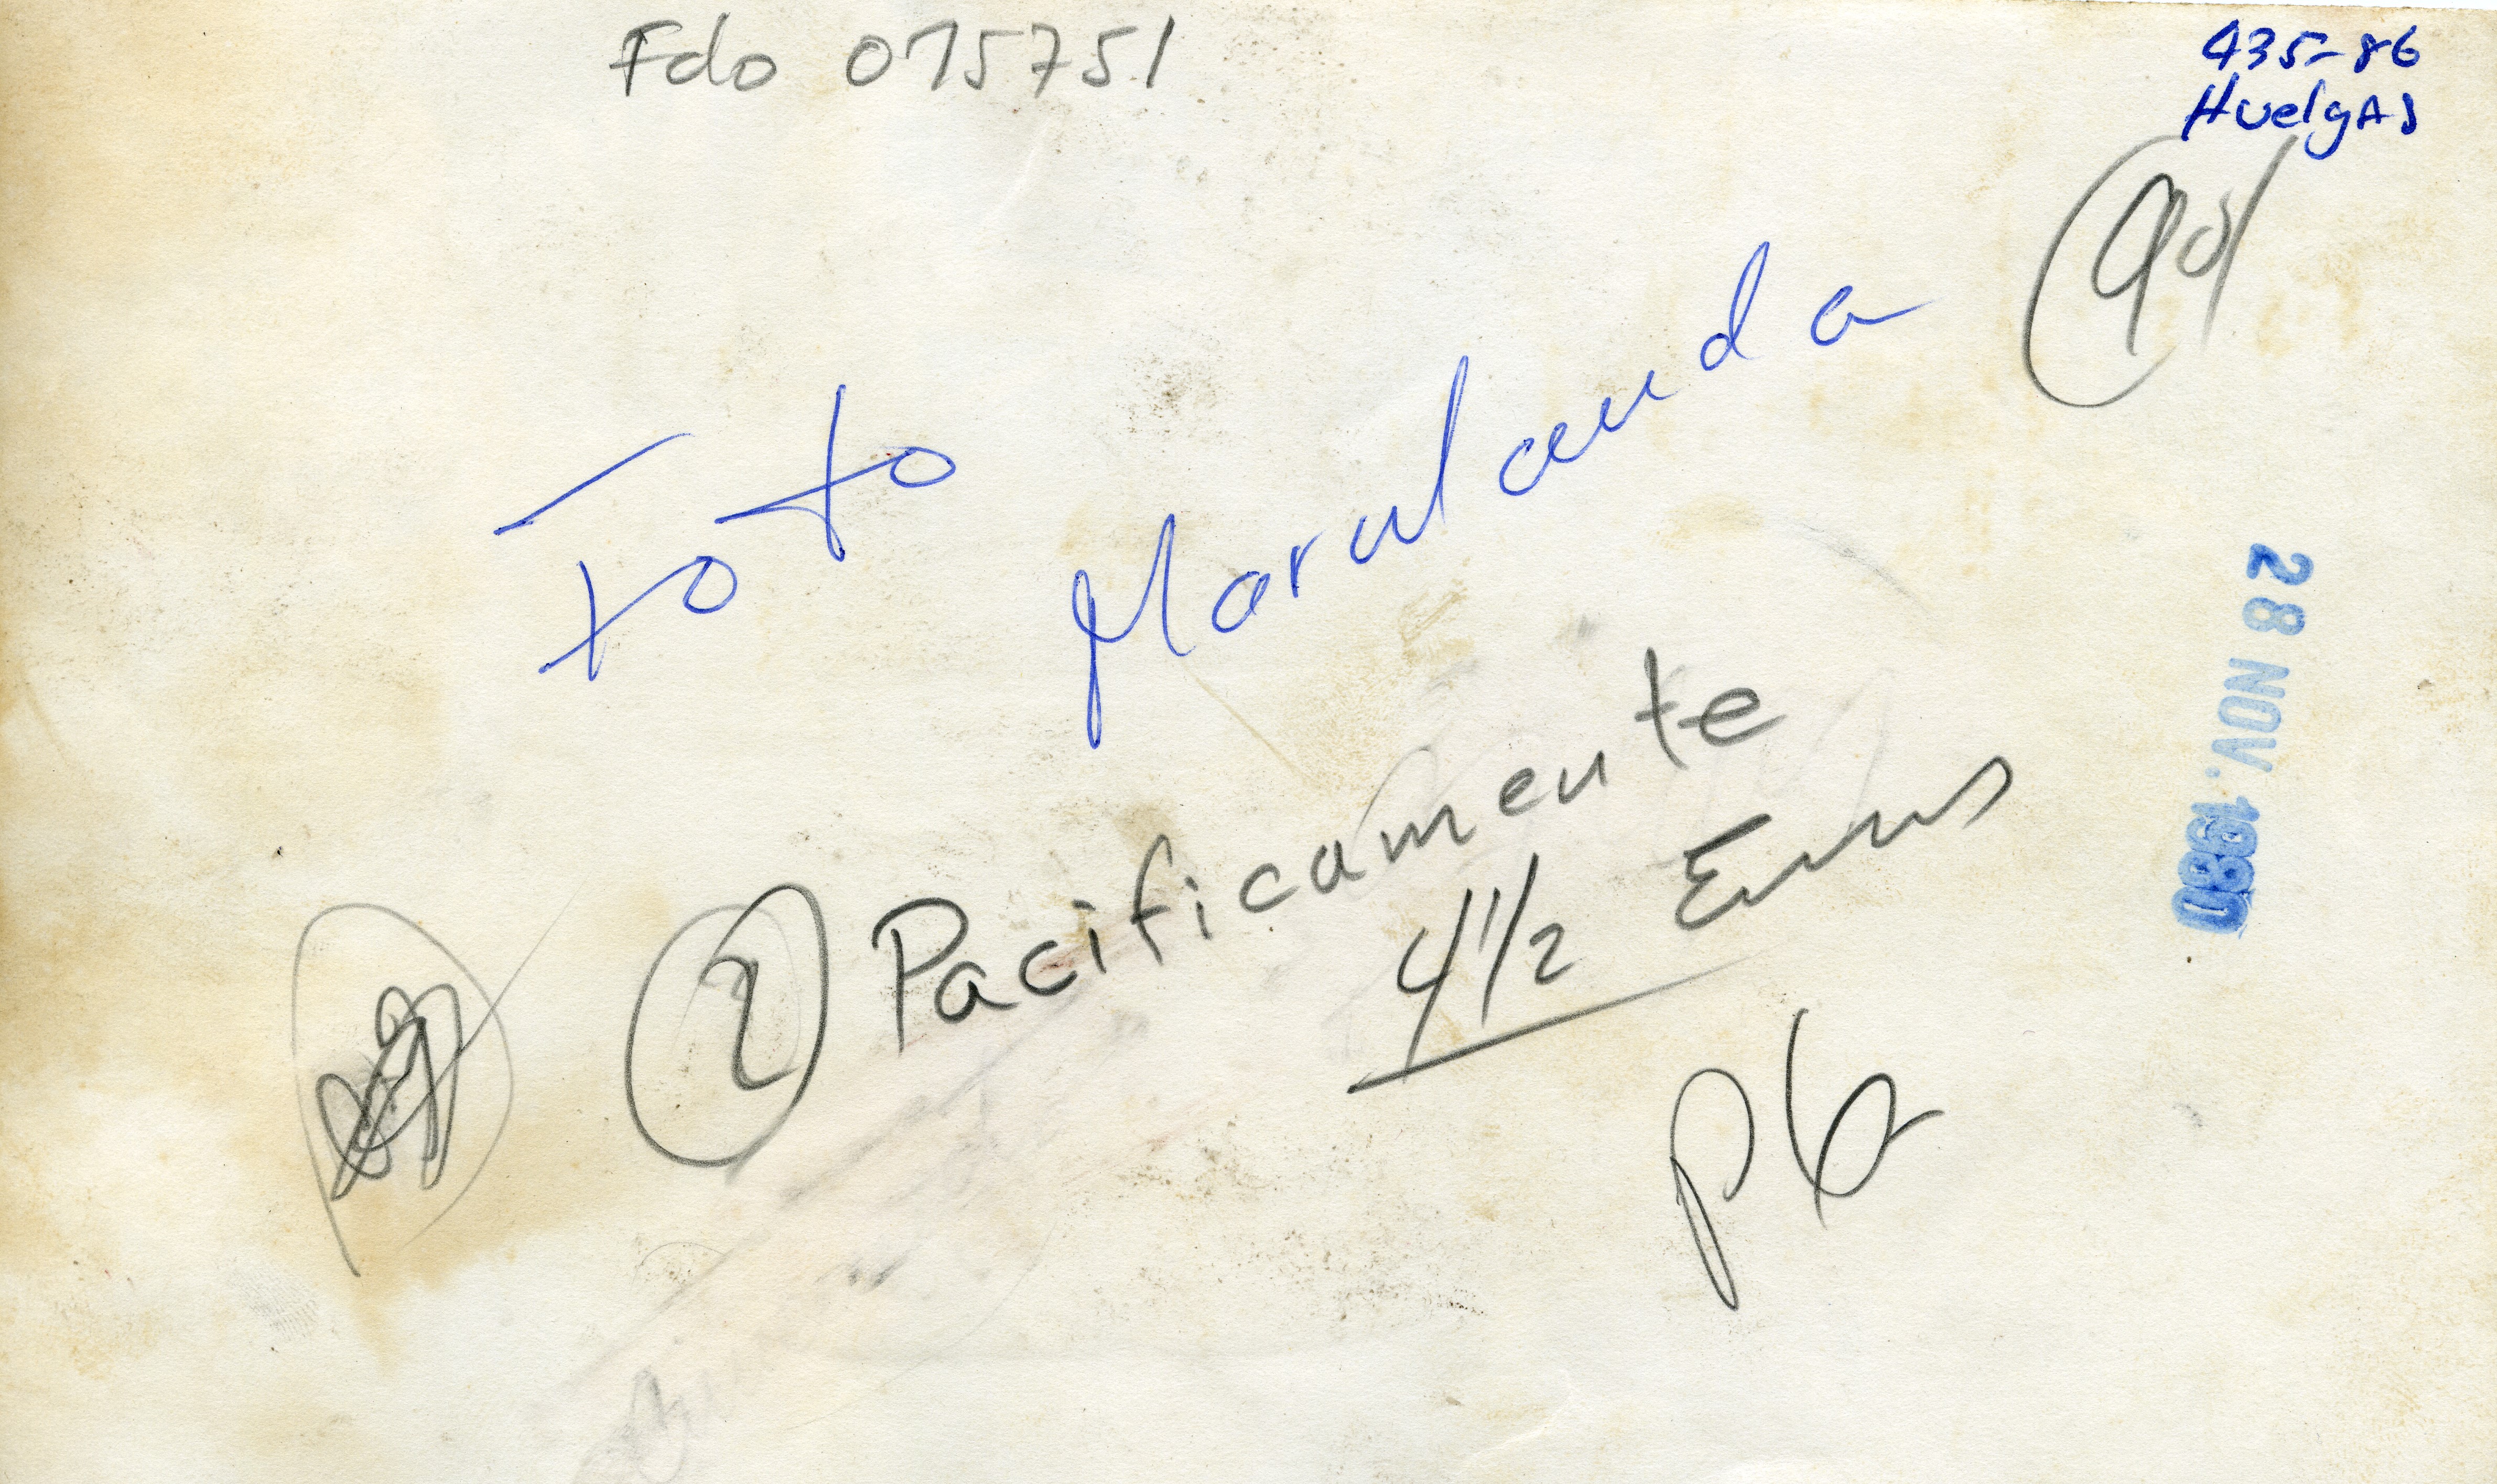 Fdo 015751
435-86
HuelgAS
Foto Marulanda
28 NOV. 1980
2 Pacificamente
4 1/2
p6